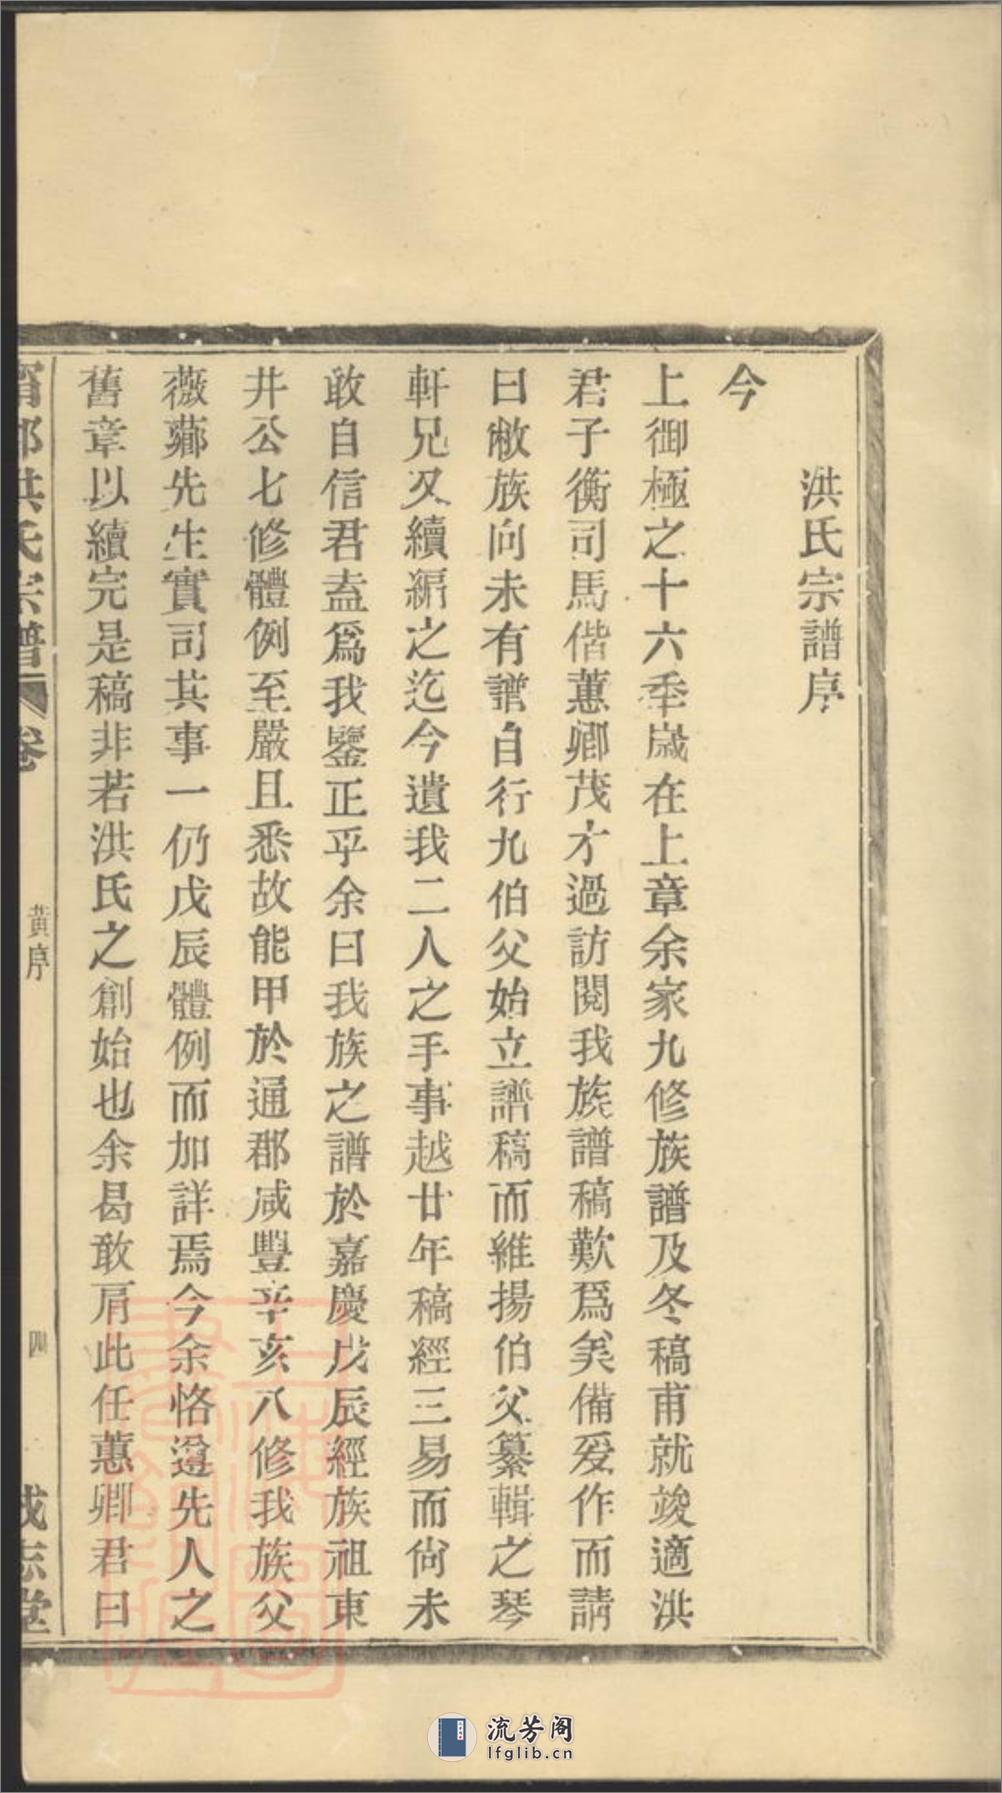 洪氏宗譜序
今
上御極之十六季歲在上章余家九修族譜及冬稿甫就竣適洪
君子衡司馬偕蕙卿茂才過訪閱我族譜稿歎爲美備爰作而請
曰敝族向未有譜自行九伯父始立譜稿而維揚伯父纂輯之琴
軒兄又續編之迄今遺我二人之手事越廿年稿經三易而尙未
敢自信君盍爲我鑒正乎余曰我族之譜於嘉慶戊辰經族祖東
井公七修體例至嚴且悉故能甲於通郡咸豐辛亥八修我族父
薇薌先生實司其事一仍戊辰體例而加詳焉今余恪遵先人之
舊章以續完是稿非若洪氏之創始也余曷敢肩此任蕙卿君曰
洪氏宗譜
卷
黃序
四
成志堂
流芳阁
lfglib.cn